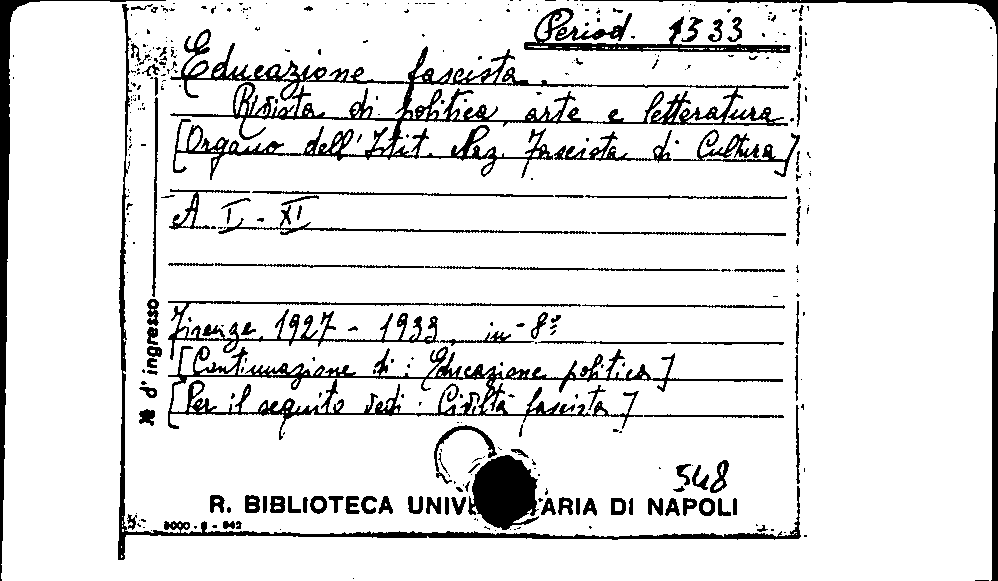 Period. 1533
Educazione fascista.
Rivista di politica, arte e letteratura.
[Organo dell'Istit. Naz. Fascista di Cultura]
A. I - XI
Firenze, 1927 - 1933, in-8º
[Continuazione di: Educazione politica]
[Per il seguito vedi: Civiltà fascista]
№ d'ingresso
548
R. BIBLIOTECA UNIVE TARIA DI NAPOLI
9000 - 8 - 942